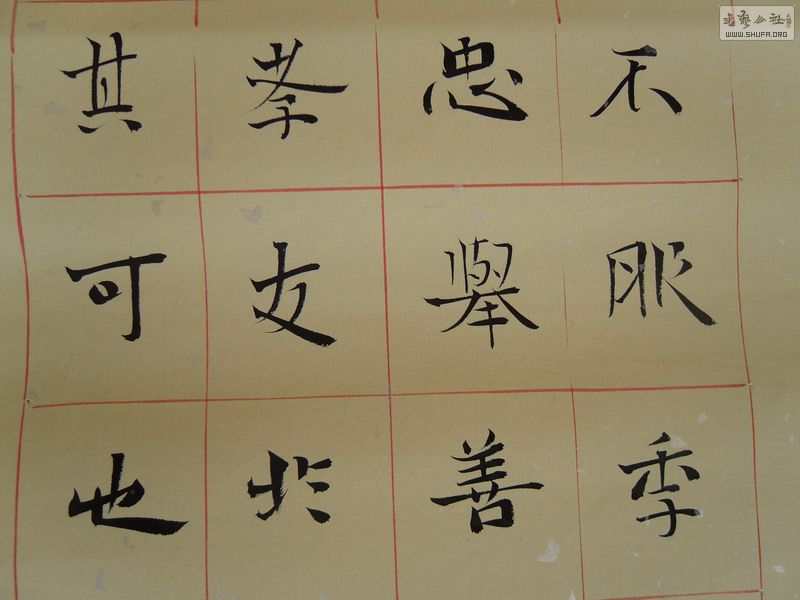 不服季
忠舉善
孝友於
其可也
書藝公社
WWW.SHUFA.ORG